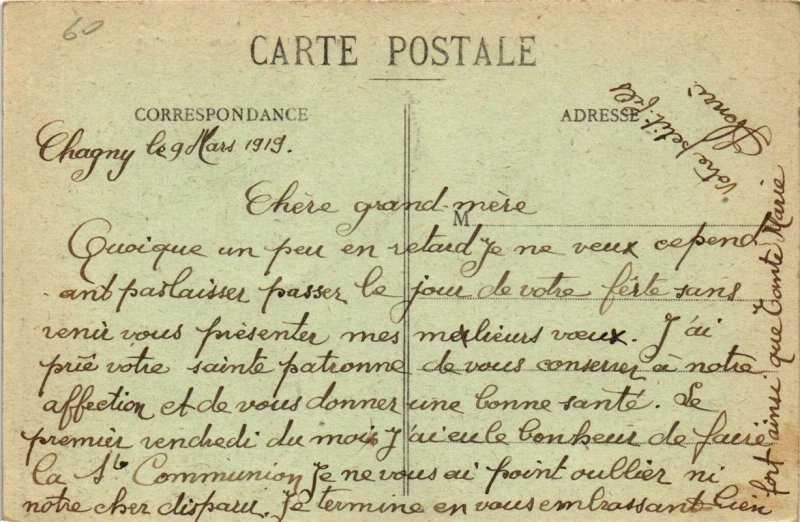 60
CARTE POSTALE
CORRESPONDANCE
ADRESSE
Chagny le 9 Mars 1919.
Chère grand-mère
M
Quoique un peu en retard je ne veux cepend
ant pas laisser passer le jour de votre fête sans
venir vous présenter mes meilieurs vœux. J'ai
prié votre sainte patronne de vous conserver à notre
affection et de vous donner une bonne santé. Le
premier vendredi du mois J'ai eu le bonheur de faire
la Ste Communion Je ne vous ai point oublier ni
notre cher disparu. Je termine en vous embrassant bien
fort ainsi que Tante Marie
Votre petit-fils